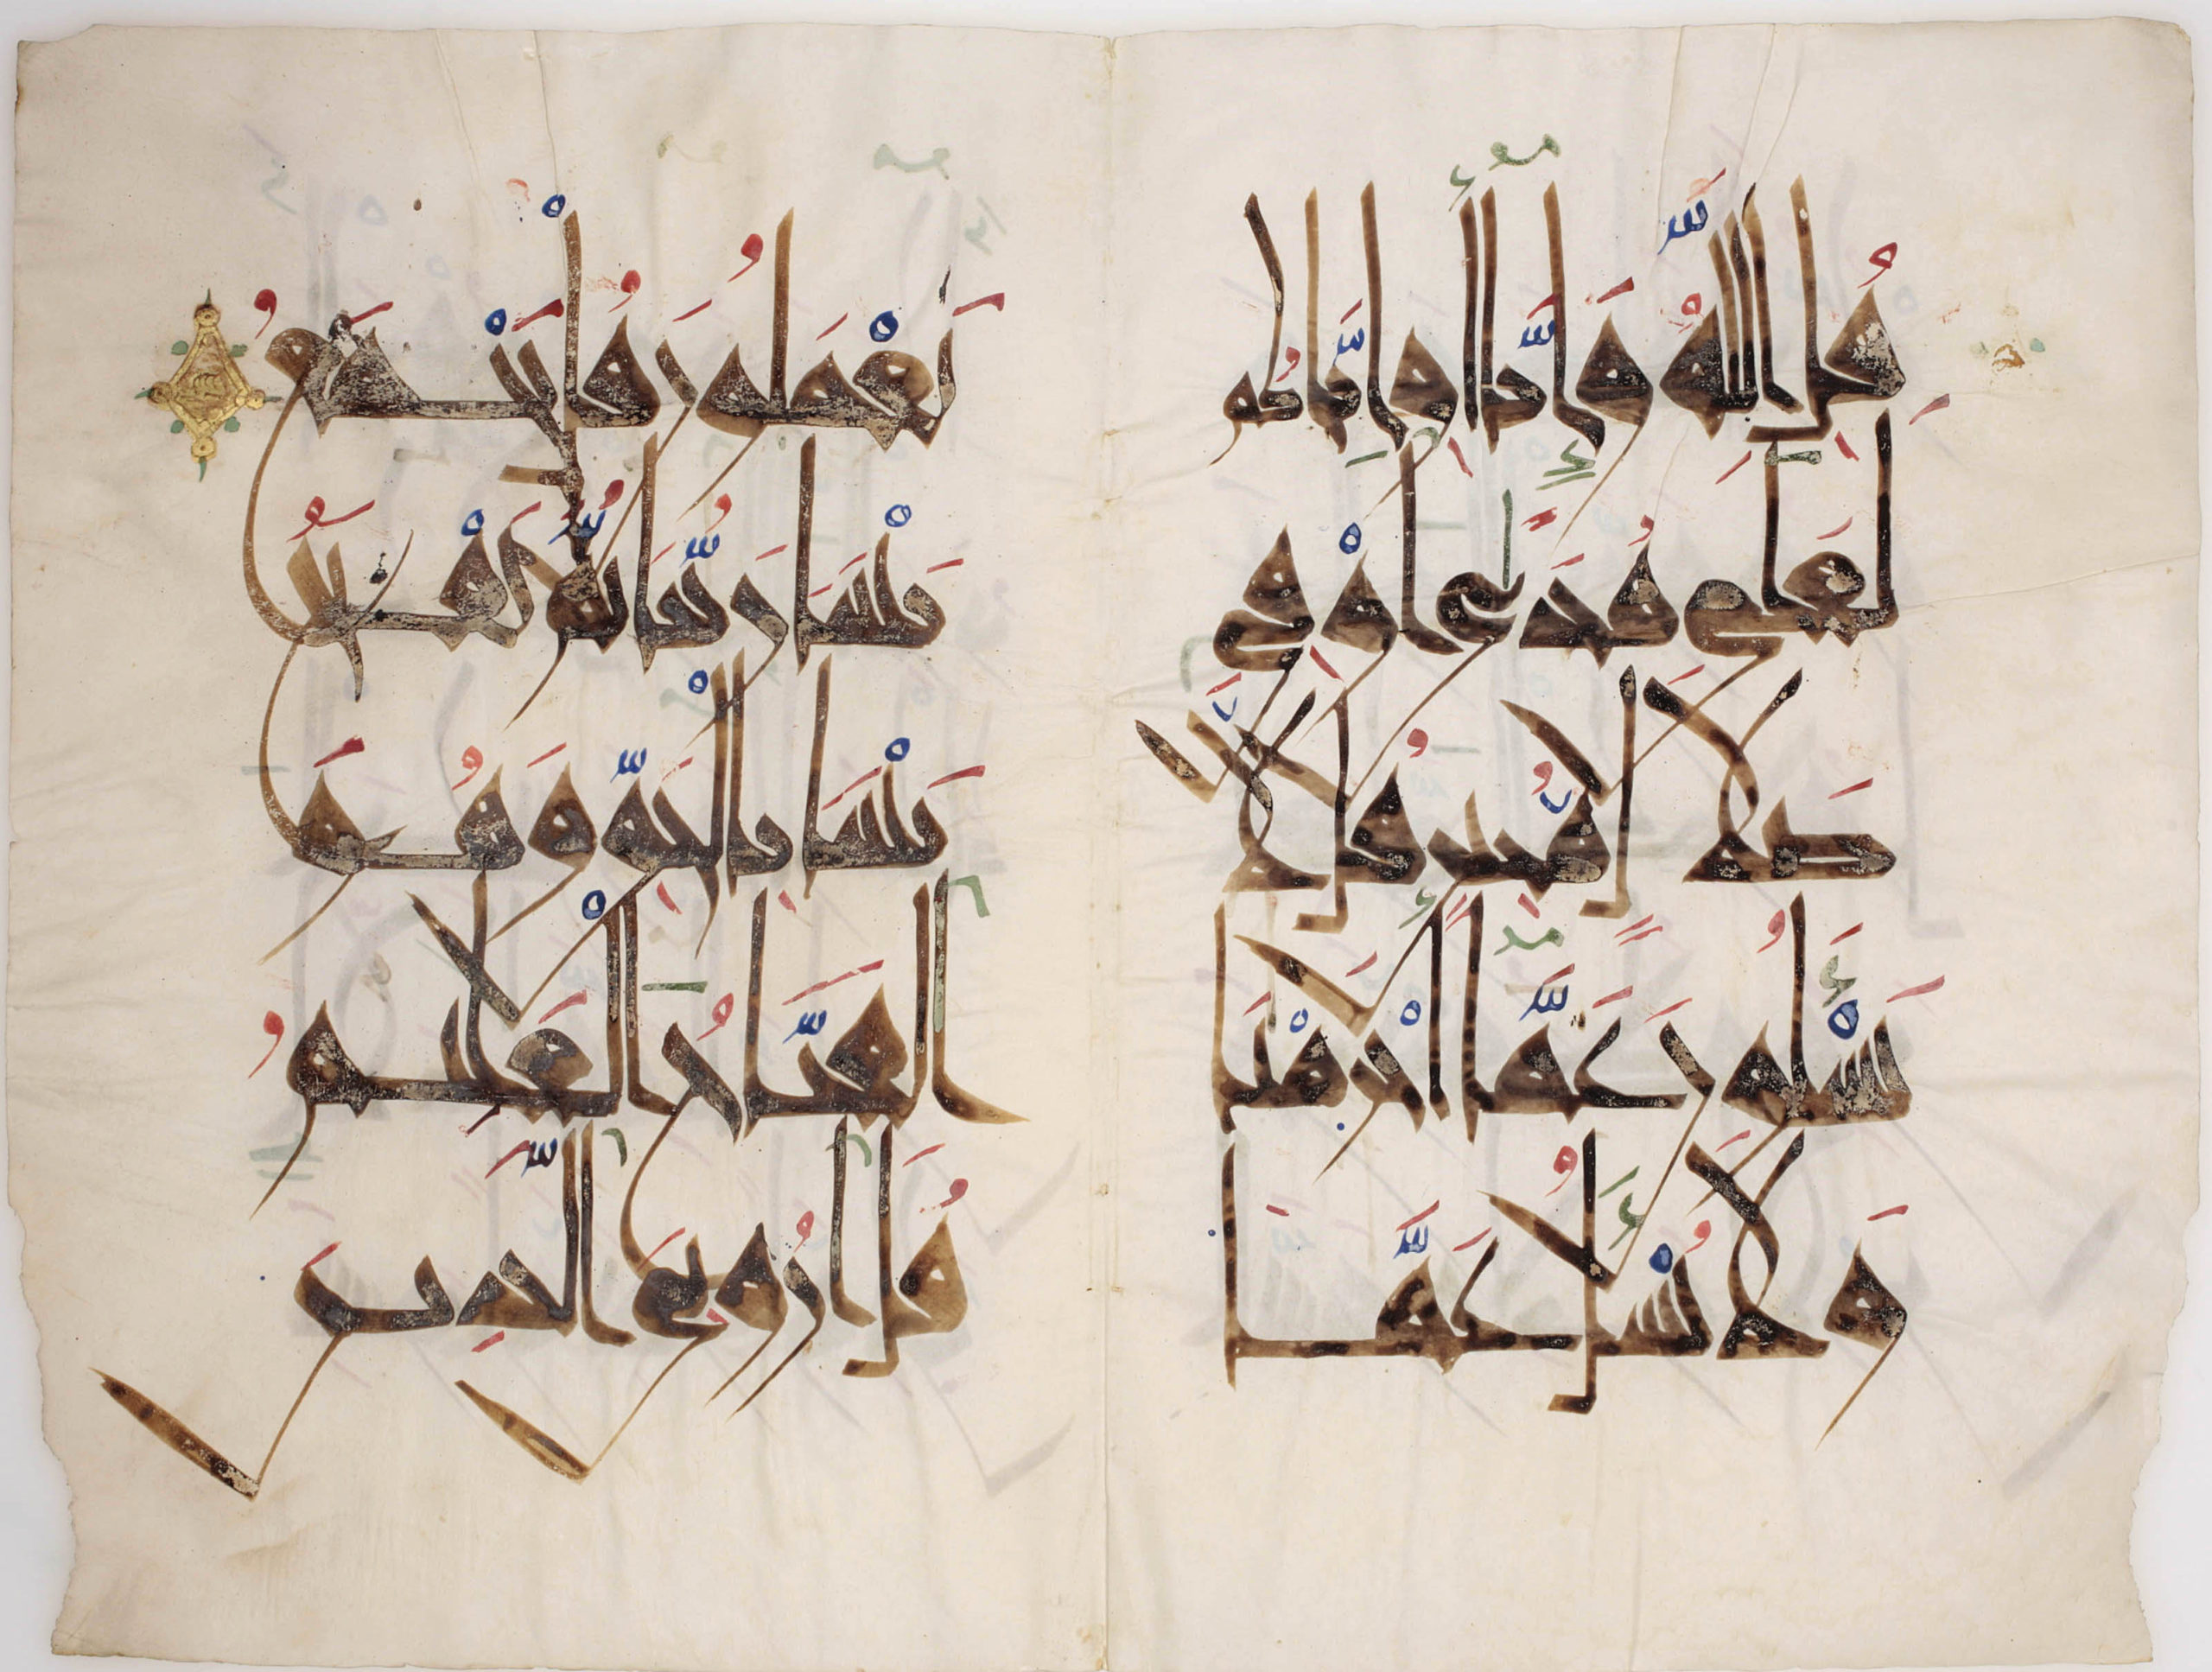 قُلِ اللَّهُ وَإِنَّا أَوْ إِيَّاكُمْ
لَعَلَى هُدًى أَوْ فِي
ضَلَالٍ مُّبِينٍ قُل لَّا
تُسْـَٔلُونَ عَمَّا أَجْرَمْنَا
وَلَا نُسْـَٔلُ عَمَّا
تَعْمَلُونَ قُلْ يَجْمَعُ
بَيْنَنَا رَبُّنَا ثُمَّ يَفْتَحُ
بَيْنَنَا بِالْحَقِّ وَهُوَ
الْفَتَّاحُ الْعَلِيمُ
قُلْ أَرُونِيَ الَّذِينَ